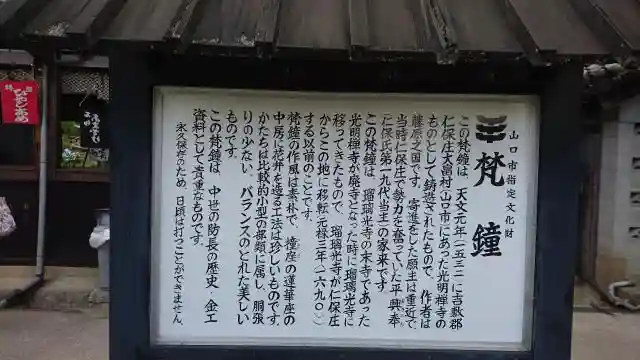 山口市指定文化財
梵鐘
この梵鐘は、天文元年(一五三二)に吉敷郡
仁保庄大冨村(山口市)にあった光明禅寺の
ものとして鋳造されたもので、作者は
藤原之国です。寄進をした願主は重近で
当時仁保庄で勢力を奮っていた平興奉
(仁保氏第一九代当主)の家来です。
この梵鐘は、瑠璃光寺の末寺であった
光明禅寺が廃寺となった時に瑠璃光寺に
移ってきたもので、瑠璃光寺が仁保庄
からこの地に移転(元禄三年(一六九〇))
する以前のことです。
梵鐘の作風は素朴で、撞座の蓮華座の
中房に花卉を造る工法は珍しいものです。
かたちは比較的小型の部類に属し、胴張
りの少ない、バランスのとれた美しい
ものです。
この梵鐘は、中世の防長の歴史・金工
資料として貴重なものです。
永久保存のため、日頃は打つことができません。